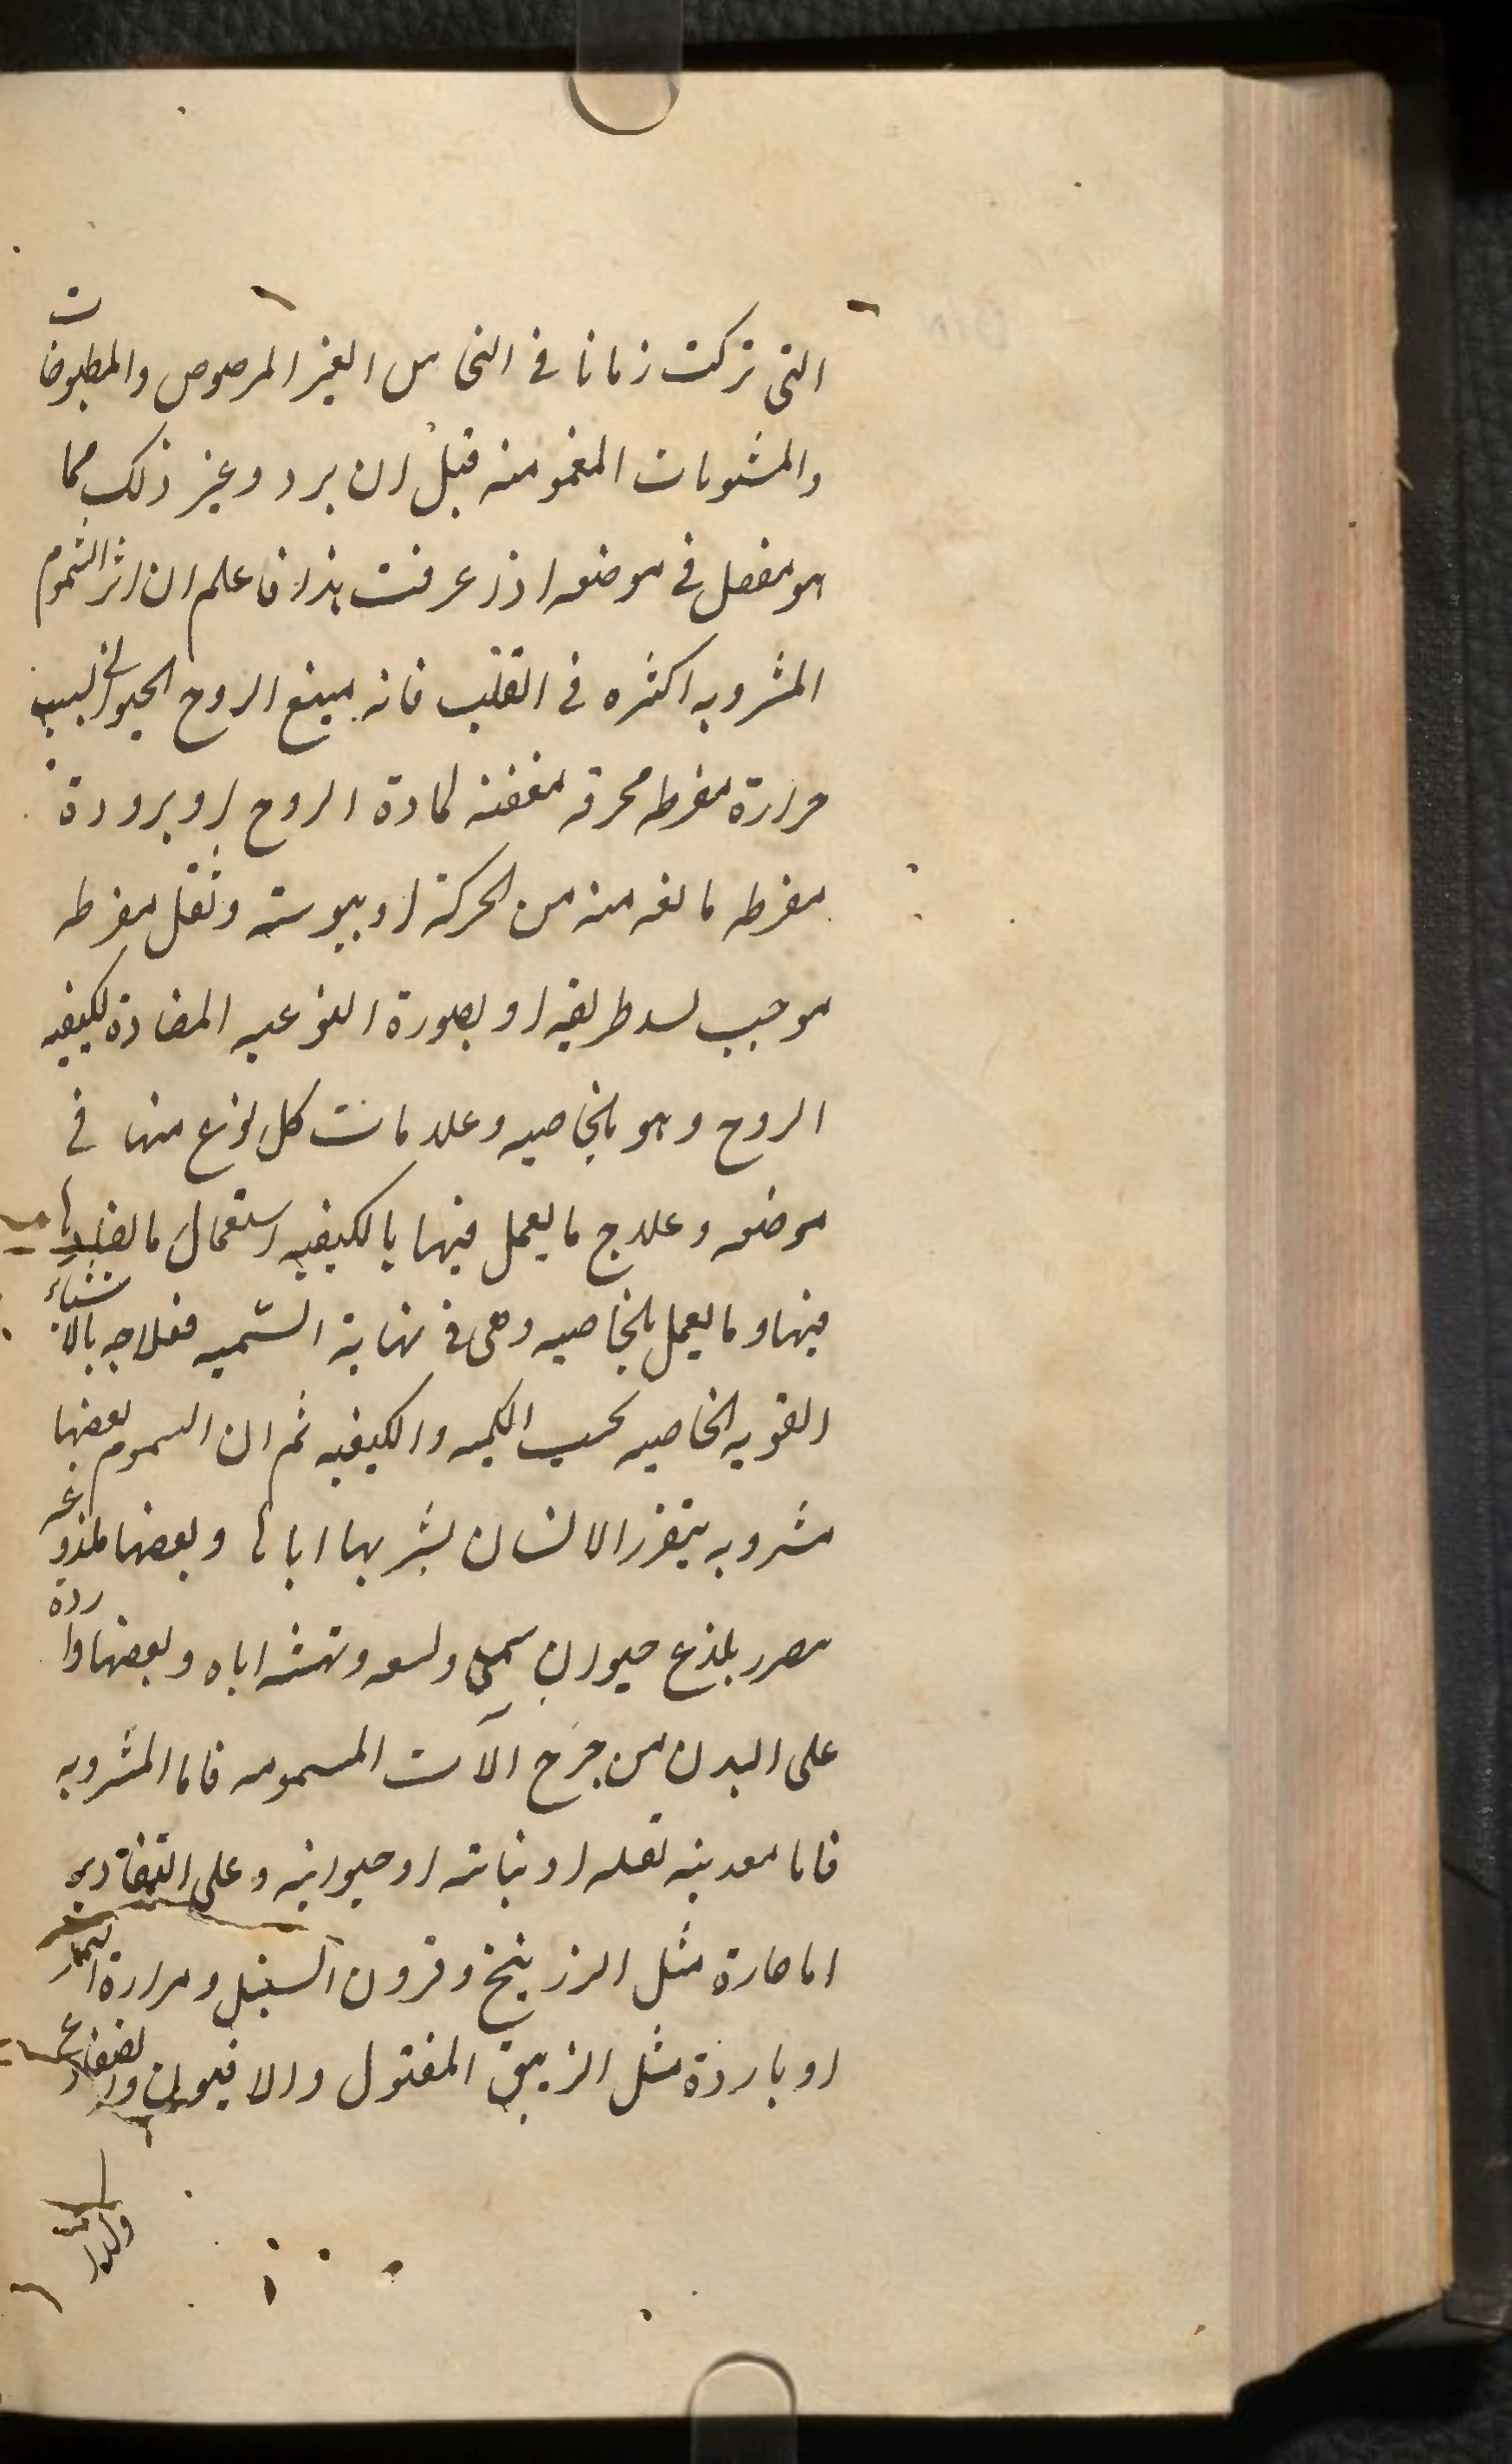 التى تركت زمانا فى النحاس الغير المرصوص والمطبوخات
والمشويات المغمومنه قبل ان برد وغير ذلك مما
هو مفصل فى موضعه اذا عرفت هذا فاعلم ان اثر السموم
المشروبه اكثره فى القلب فانه يميع الروح الحيوانى بسبب
حرارة مفرطه محرقه معفنه لمادة الروح او برودة
مفرطه مانعه منه من الحركة او يبوسته وثقل مفرطه
موجب لسد طريقه او بصورة النوعيه المضادة لكيفيه
الروح وهو بالخاصيه وعلامات كل نوع منها فى
موضعه وعلاج ما يعمل فيها بالكيفيه استعمال ما يضادها
فيها وما يعمل بالخاصيه وهى فى نهاية السّميه فعلاجه بالاشياء
القويه الخاصيه بحسب الكميه والكيفيه ثم ان السموم بعضها
مشروبه يتضرر الانسان بشربها اياها وبعضها ملذوغه
مصرر بلذغ حيوان سمى ولسعه ونهشه اياه وبعضها واردة
على البدن من جرح الآت المسمومه فاما المشروبه
فاما معدنيه ثقله او نباته او حيوانيه وعلى التقادير
اما حارة مثل الزرنيخ وقرون السنبل ومرارة النمر
او باردة مثل الزيبق المقتول والافيون والضفادع